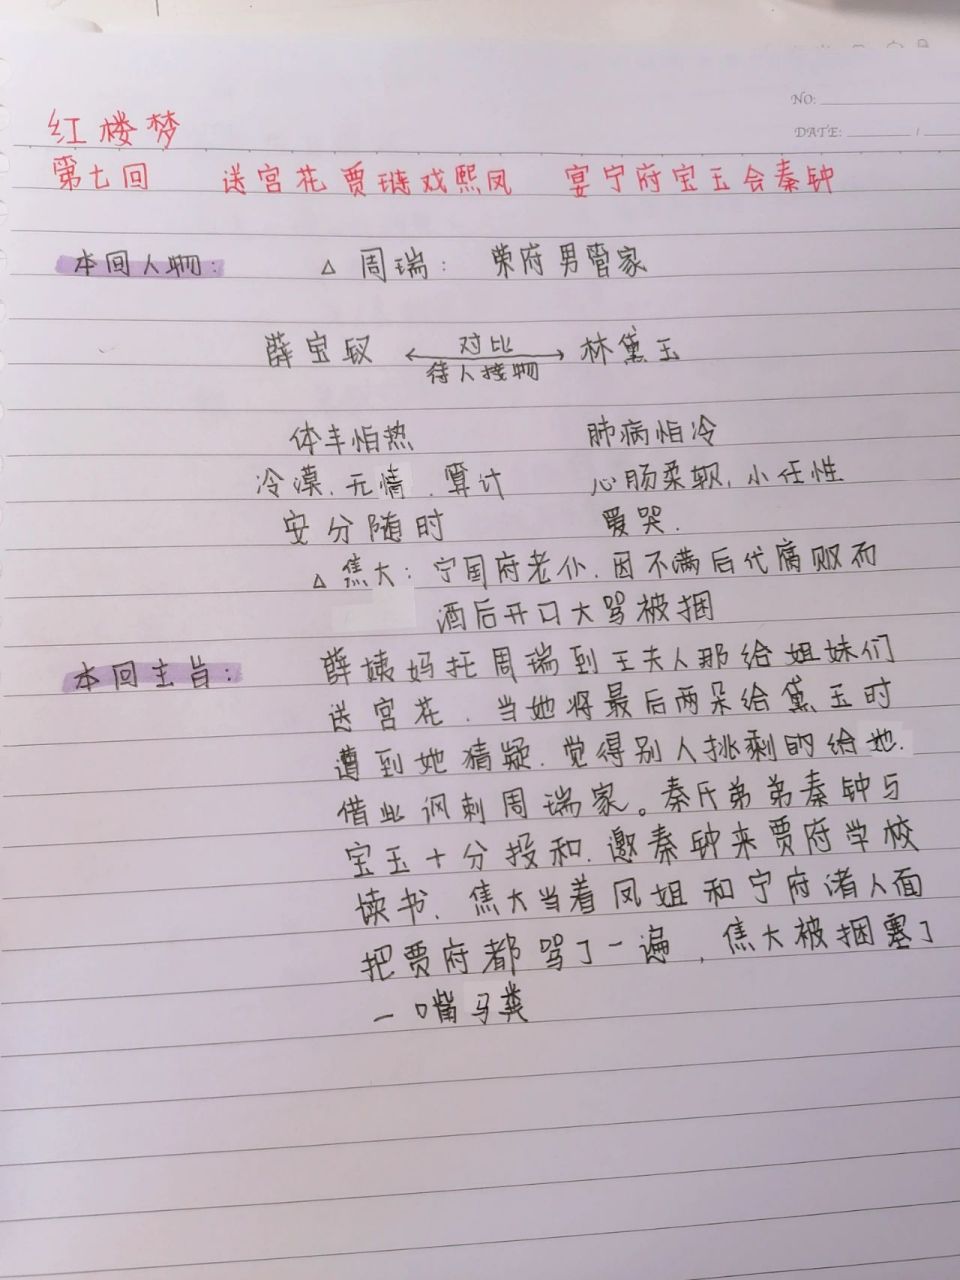 NO:
DATE: /
红楼梦
第七回 送宫花贾琏戏熙凤 宴宁府宝玉会秦钟
本回人物: △ 周瑞: 荣府男管家
薛宝钗 对比 林黛玉
待人接物
体丰怕热 肺病怕冷
冷漠.无情.算计 心肠柔软,小任性
安分随时 爱哭.
△ 焦大: 宁国府老仆.因不满后代腐败而
酒后开口大骂被捆
本回主旨: 薛姨妈托周瑞到王夫人那给姐妹们
送宫花.当她将最后两朵给黛玉时
遭到她猜疑.觉得别人挑剩的给她.
借此讽刺周瑞家。秦氏弟弟秦钟与
宝玉十分投和.邀秦钟来贾府学校
读书.焦大当着凤姐和宁府诸人面
把贾府都骂了一遍,焦大被捆塞了
一嘴马粪